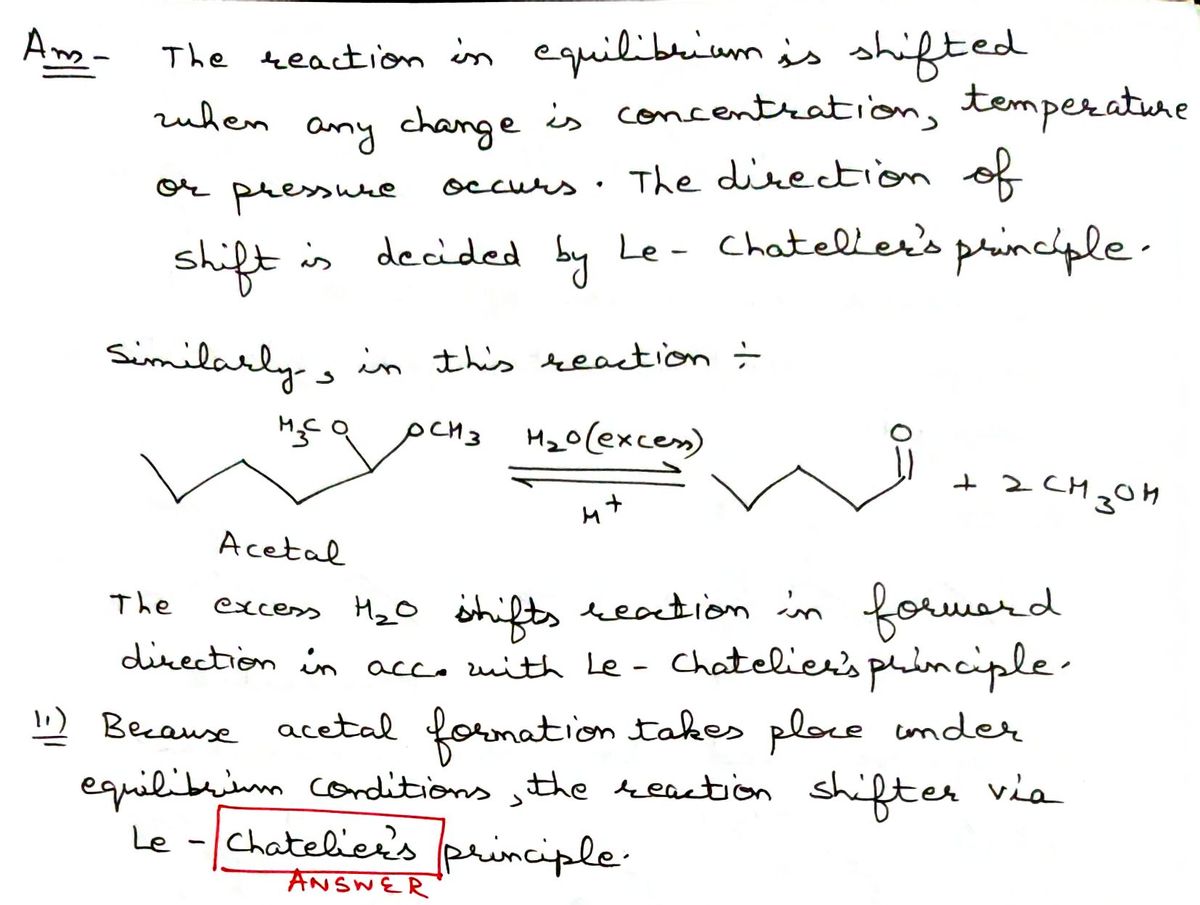 Ans- The reaction in equilibrium is shifted
when any change is concentration, temperature
or pressure occurs. The direction of
shift is decided by Le - Chatelier's principle.
Similarly, in this reaction ÷
H₃CO OCH₃ H₂O (excess) O
H⁺ + 2 CH₃OH
Acetal
The excess H₂O shifts reaction in forward
direction in acc. with Le - Chatelier's principle.
ii) Because acetal formation takes place under
equilibrium conditions, the reaction shifter via
Le - Chatelier's principle.
ANSWER